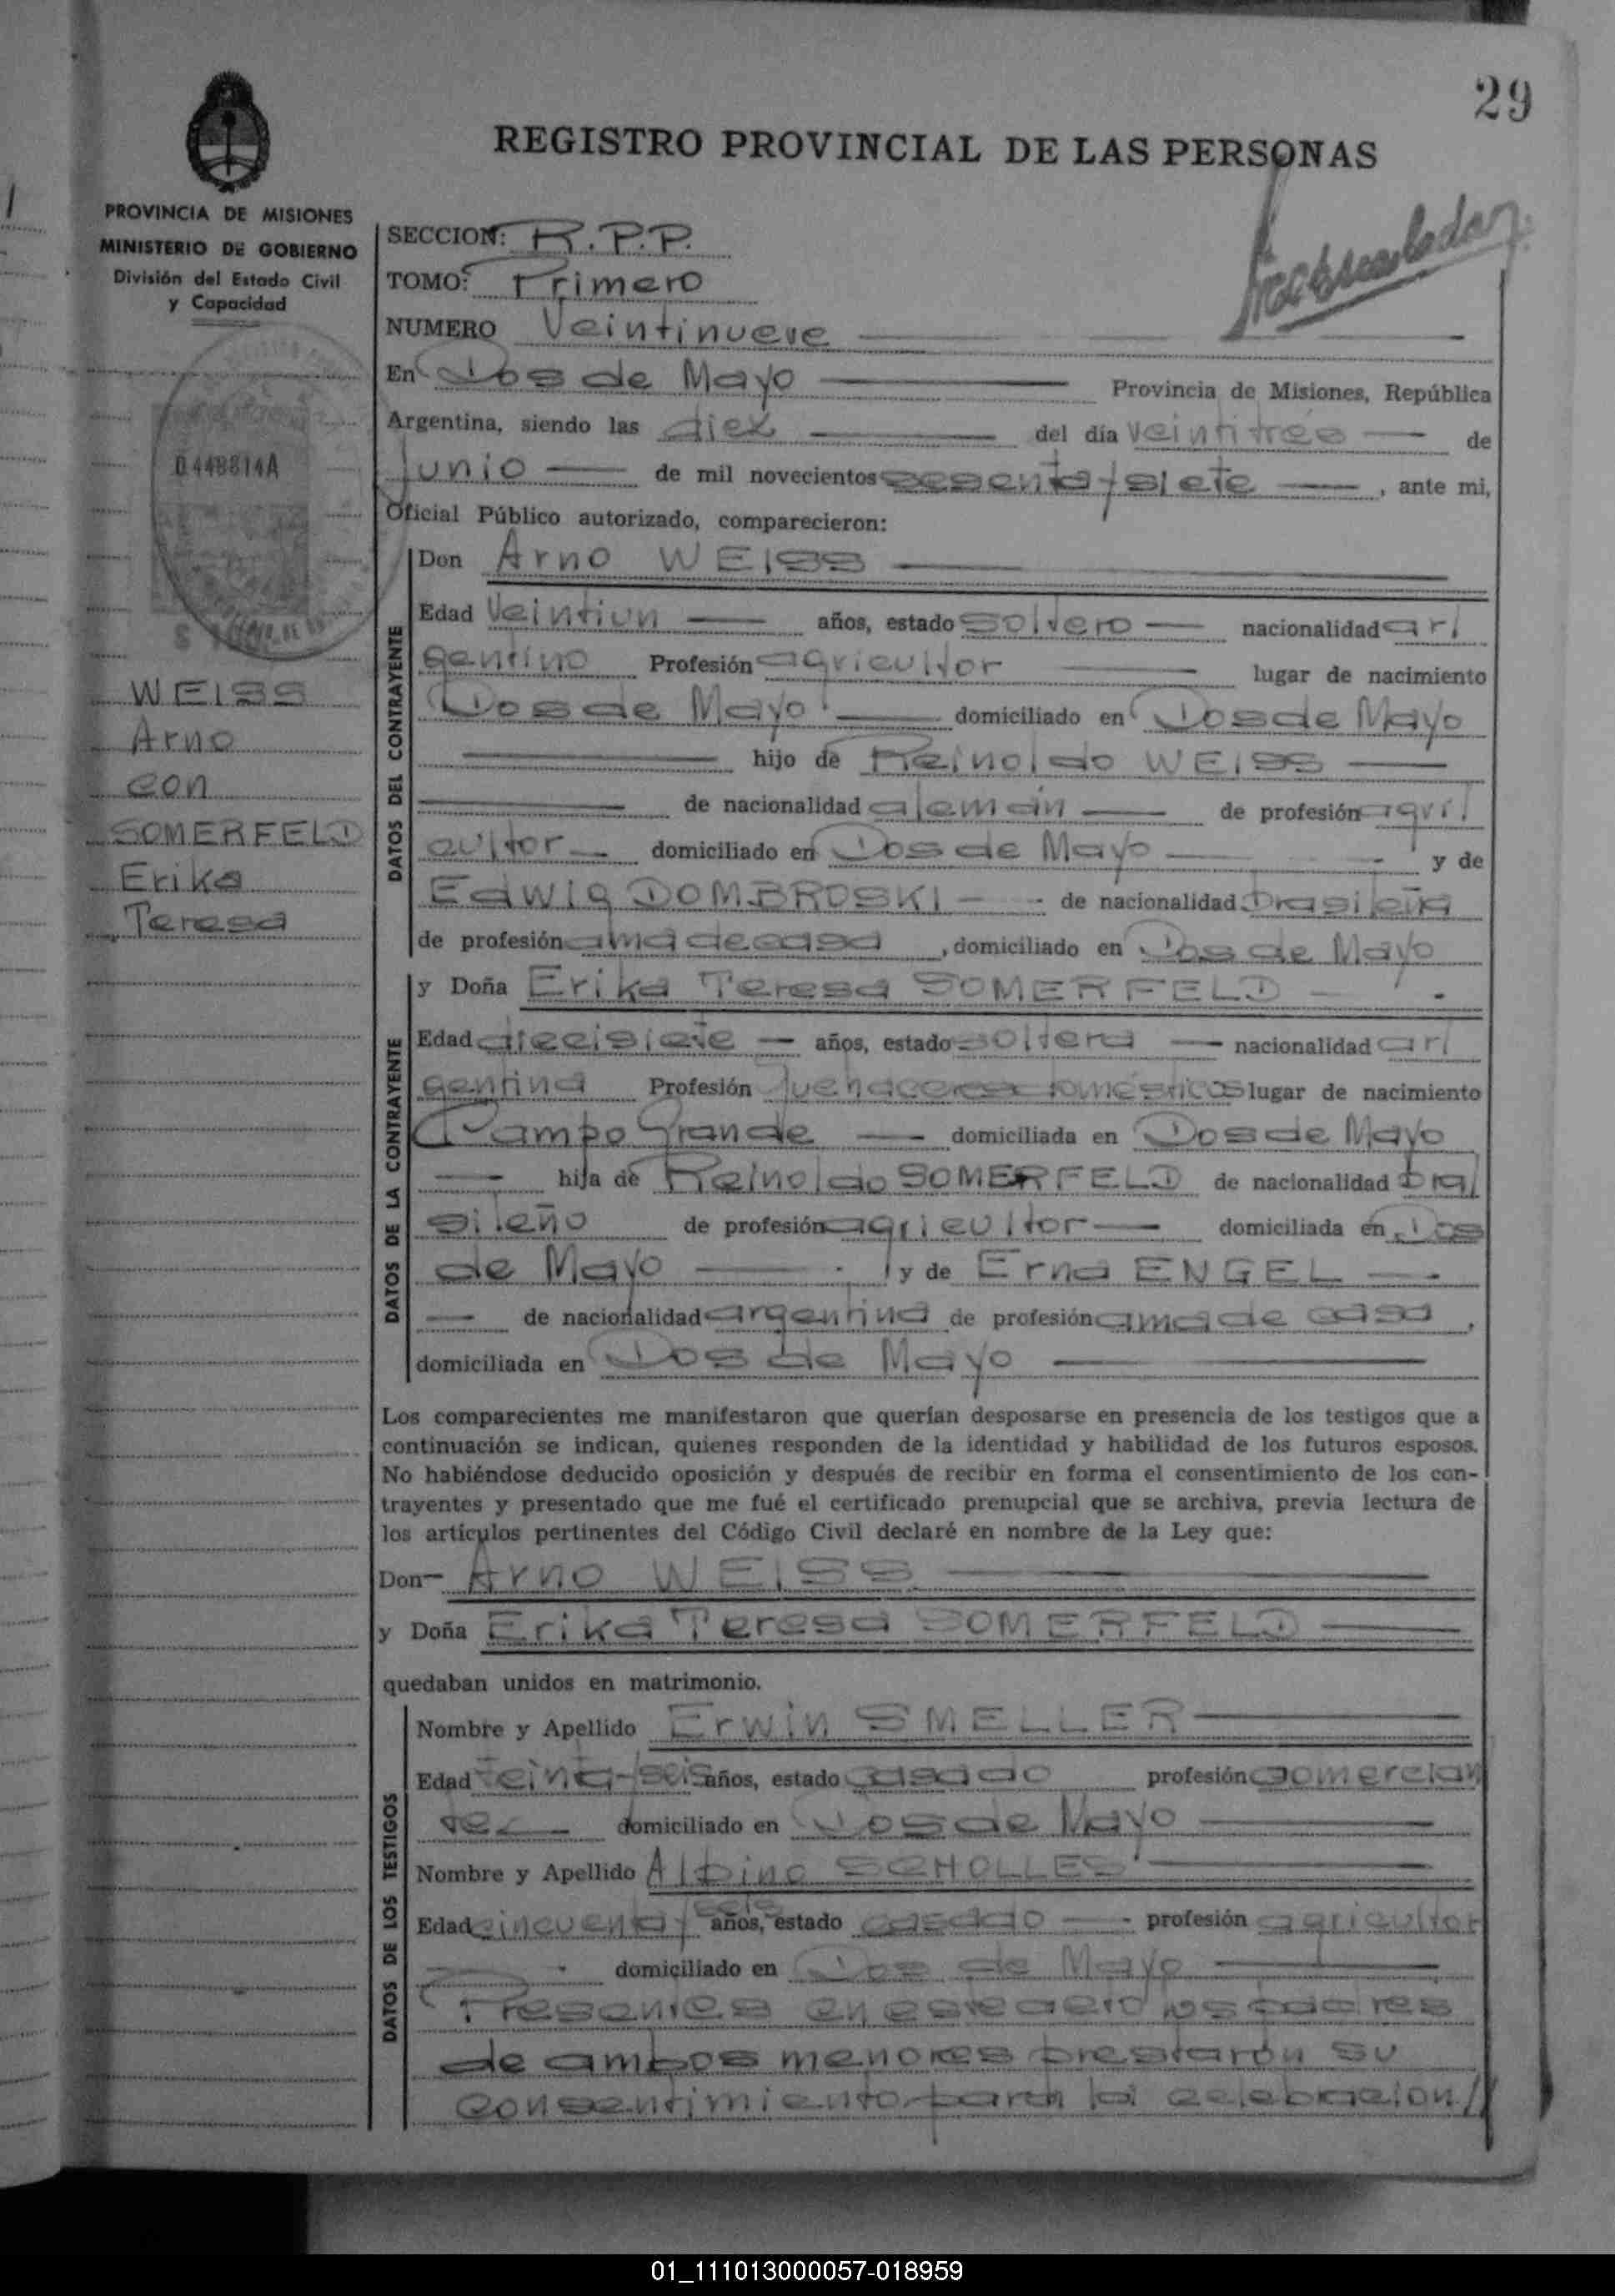 29
REGISTRO PROVINCIAL DE LAS PERSONAS
PROVINCIA DE MISIONES
MINISTERIO DE GOBIERNO
División del Estado Civil
y Capacidad
0448814A
WEISS
Arno
con
SOMERFELD
Erika
Teresa
SECCION: R.P.P.
TOMO: Primero
NUMERO Veintinueve
En Dos de Mayo Provincia de Misiones, República
Argentina, siendo las diez del día veintitrés de
junio de mil novecientos sesenta y siete, ante mi,
Oficial Público autorizado, comparecieron:
DATOS DEL CONTRAYENTE
Don Arno WEISS
Edad Veintiun años, estado soltero nacionalidad ar/
gentino Profesión agricultor lugar de nacimiento
Dos de Mayo domiciliado en Dos de Mayo
hijo de Reinoldo WEISS
de nacionalidad alemán de profesión agri/
cultor domiciliado en Dos de Mayo y de
Edwig DOMBROSKI de nacionalidad brasileña
de profesión ama de casa, domiciliado en Dos de Mayo
DATOS DE LA CONTRAYENTE
y Doña Erika Teresa SOMERFELD
Edad diecisiete años, estado soltera nacionalidad ar/
gentina Profesión quehaceres domésticos lugar de nacimiento
Campo Grande domiciliada en Dos de Mayo
hija de Reinoldo SOMERFELD de nacionalidad bra/
sileño de profesión agricultor domiciliada en Dos
de Mayo y de Erna ENGEL
de nacionalidad argentina de profesión ama de casa,
domiciliada en Dos de Mayo
Los comparecientes me manifestaron que querían desposarse en presencia de los testigos que a
continuación se indican, quienes responden de la identidad y habilidad de los futuros esposos.
No habiéndose deducido oposición y después de recibir en forma el consentimiento de los con-
trayentes y presentado que me fué el certificado prenupcial que se archiva, previa lectura de
los artículos pertinentes del Código Civil declaré en nombre de la Ley que:
Don Arno WEISS
y Doña Erika Teresa SOMERFELD
quedaban unidos en matrimonio.
DATOS DE LOS TESTIGOS
Nombre y Apellido Erwin SMELLER
Edad años, estado casado profesión comercian
te domiciliado en Dos de Mayo
Nombre y Apellido Albino SCHOLLES
Edad cincuenta y seis años, estado casado profesión agricultor
domiciliado en Dos de Mayo
Presentes en este acto los padres
de ambos menores prestarón su
consentimiento para la celebracion//
01_111013000057-018959